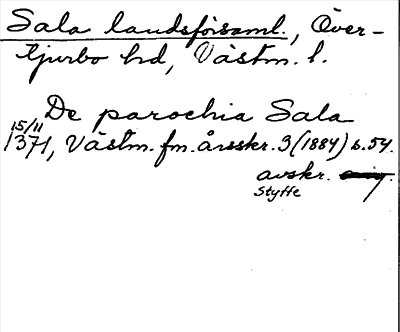 Sala landsförsaml., Över-
tjurbo hd, Västm. l.
De parochia Sala
15/11
1371, Västm. fm. årsskr. 3 (1884) s. 54.
avskr.
Styffe